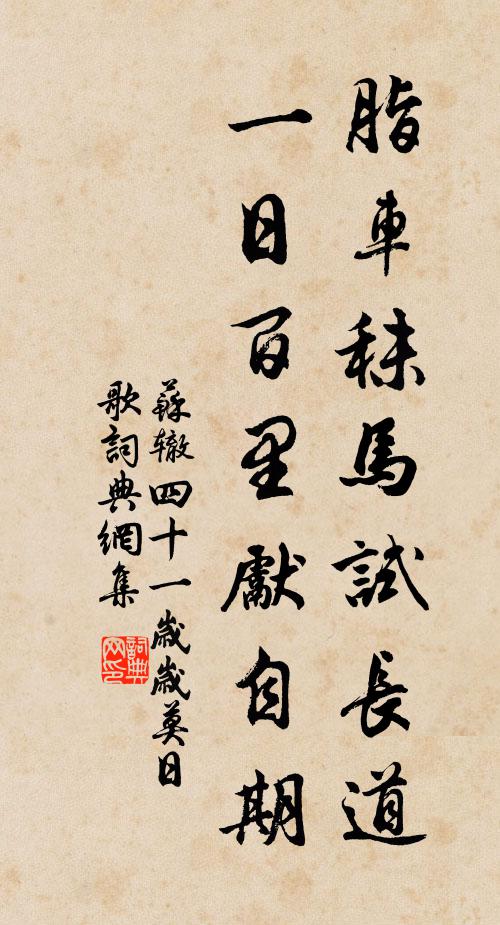 脂車秣馬試長道
一日百里獻自期
蘇辙四十一歲歲莫日
歌詞典網集
詞典网印